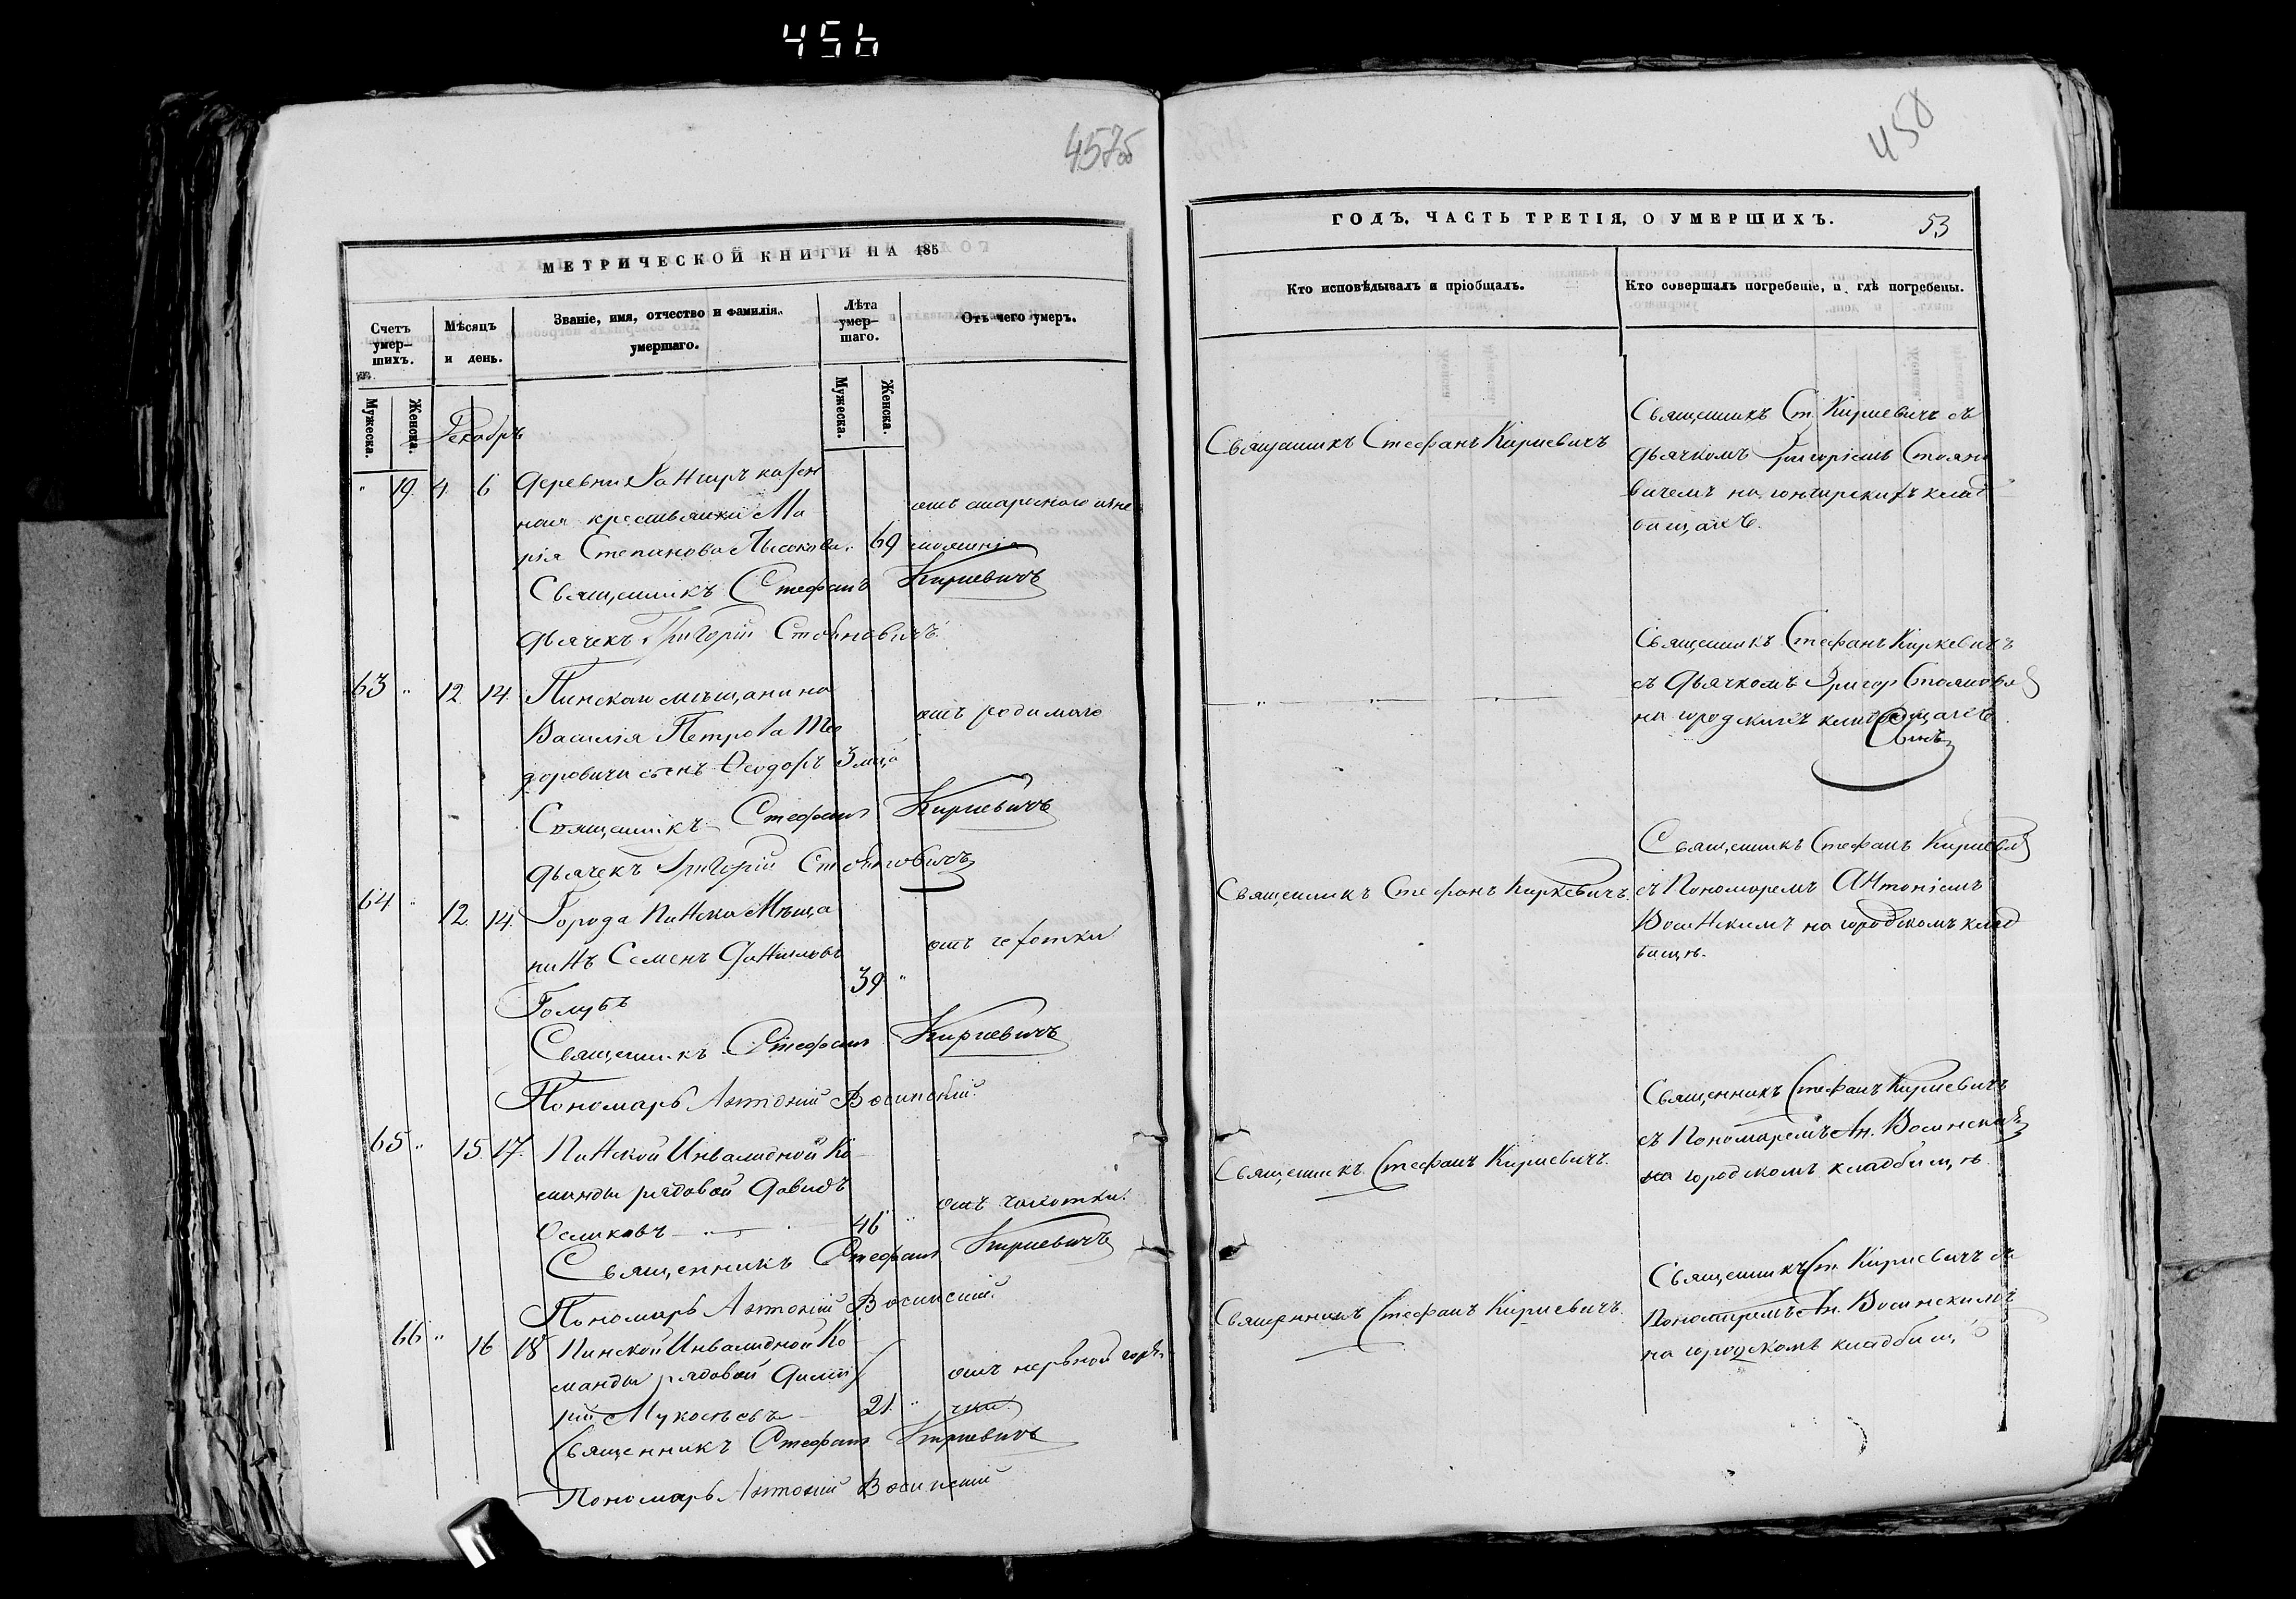 456
457об
МЕТРИЧЕСКОЙ КНИГИ НА 185
Счетъ умер-шихъ.
Мѣсяцъ и день.
Званіе, имя, отчество и фамилія умершаго.
Лѣта умер-шаго.
Отъ чего умеръ.
Мужеска.
Женска.
Мужеска.
Женска.
Декабрь
" 19. 4. 6 деревни Гончиръ казен
ная крестьянка Ма
рія Степанова 69
отъ
Священникъ Стефанъ Киркевичъ
дьячекъ Григорій Стояновичъ.
63 " 12. 14. Пинскаго мѣщанина
Василія Петрова Тео
доровича сынъ Ѳеодоръ 3 мѣс.
отъ родимаго
Священникъ Стефанъ Киркевичъ
дьячекъ Григорій Стояновичъ
64 " 12. 14. Города Пинска Мѣща
нинъ Семенъ Даниловъ
Голубъ 39 "
отъ чахотки
Священникъ Стефанъ Киркевичъ
Пономарь Антоній Восинскій.
65 " 15. 17. Пинской Инвалидной Ко
манды рядовой Давидъ
Осликовъ 46 "
отъ чахотки.
Священникъ Стефанъ Киркевичъ
Пономарь Антоній Восинскій.
66 " 16 18 Пинской Инвалидной Ко
манды рядовой Дмит
рій 21. "
отъ нервной горя
чки.
Священникъ Стефанъ Киркевичъ
Пономарь Антоній Восинскій
458
ГОДЪ, ЧАСТЬ ТРЕТІЯ, О УМЕРШИХЪ.
53
Кто исповѣдывалъ и пріобщалъ.
Кто совершалъ погребеніе, и гдѣ погребены.
Священникъ Стефанъ Киркевичъ
Священникъ Ст. Киркевичъ съ
дьячкомъ Григоріемъ Стоянo
вичемъ на гончирскихъ клад
бищахъ.
Священникъ Стефанъ Киркевичъ
съ дьячкомъ Григор Стоянов
на городскихъ кладбищахъ
Священникъ Стефанъ Киркевичъ.
Священникъ Стефанъ Киркев
съ Пономаремъ Антоніемъ
Восинскимъ на городскомъ клад
бищѣ.
Священникъ Стефанъ Киркевичъ.
Священникъ Стефанъ Киркевичъ
съ Пономаремъ Ан. Восинским
на городскомъ кладбищѣ.
Священникъ Стефанъ Киркевичъ.
Священникъ Ст. Киркевичъ съ
Пономаремъ Ан. Восинскимъ
на городскомъ кладбищѣ